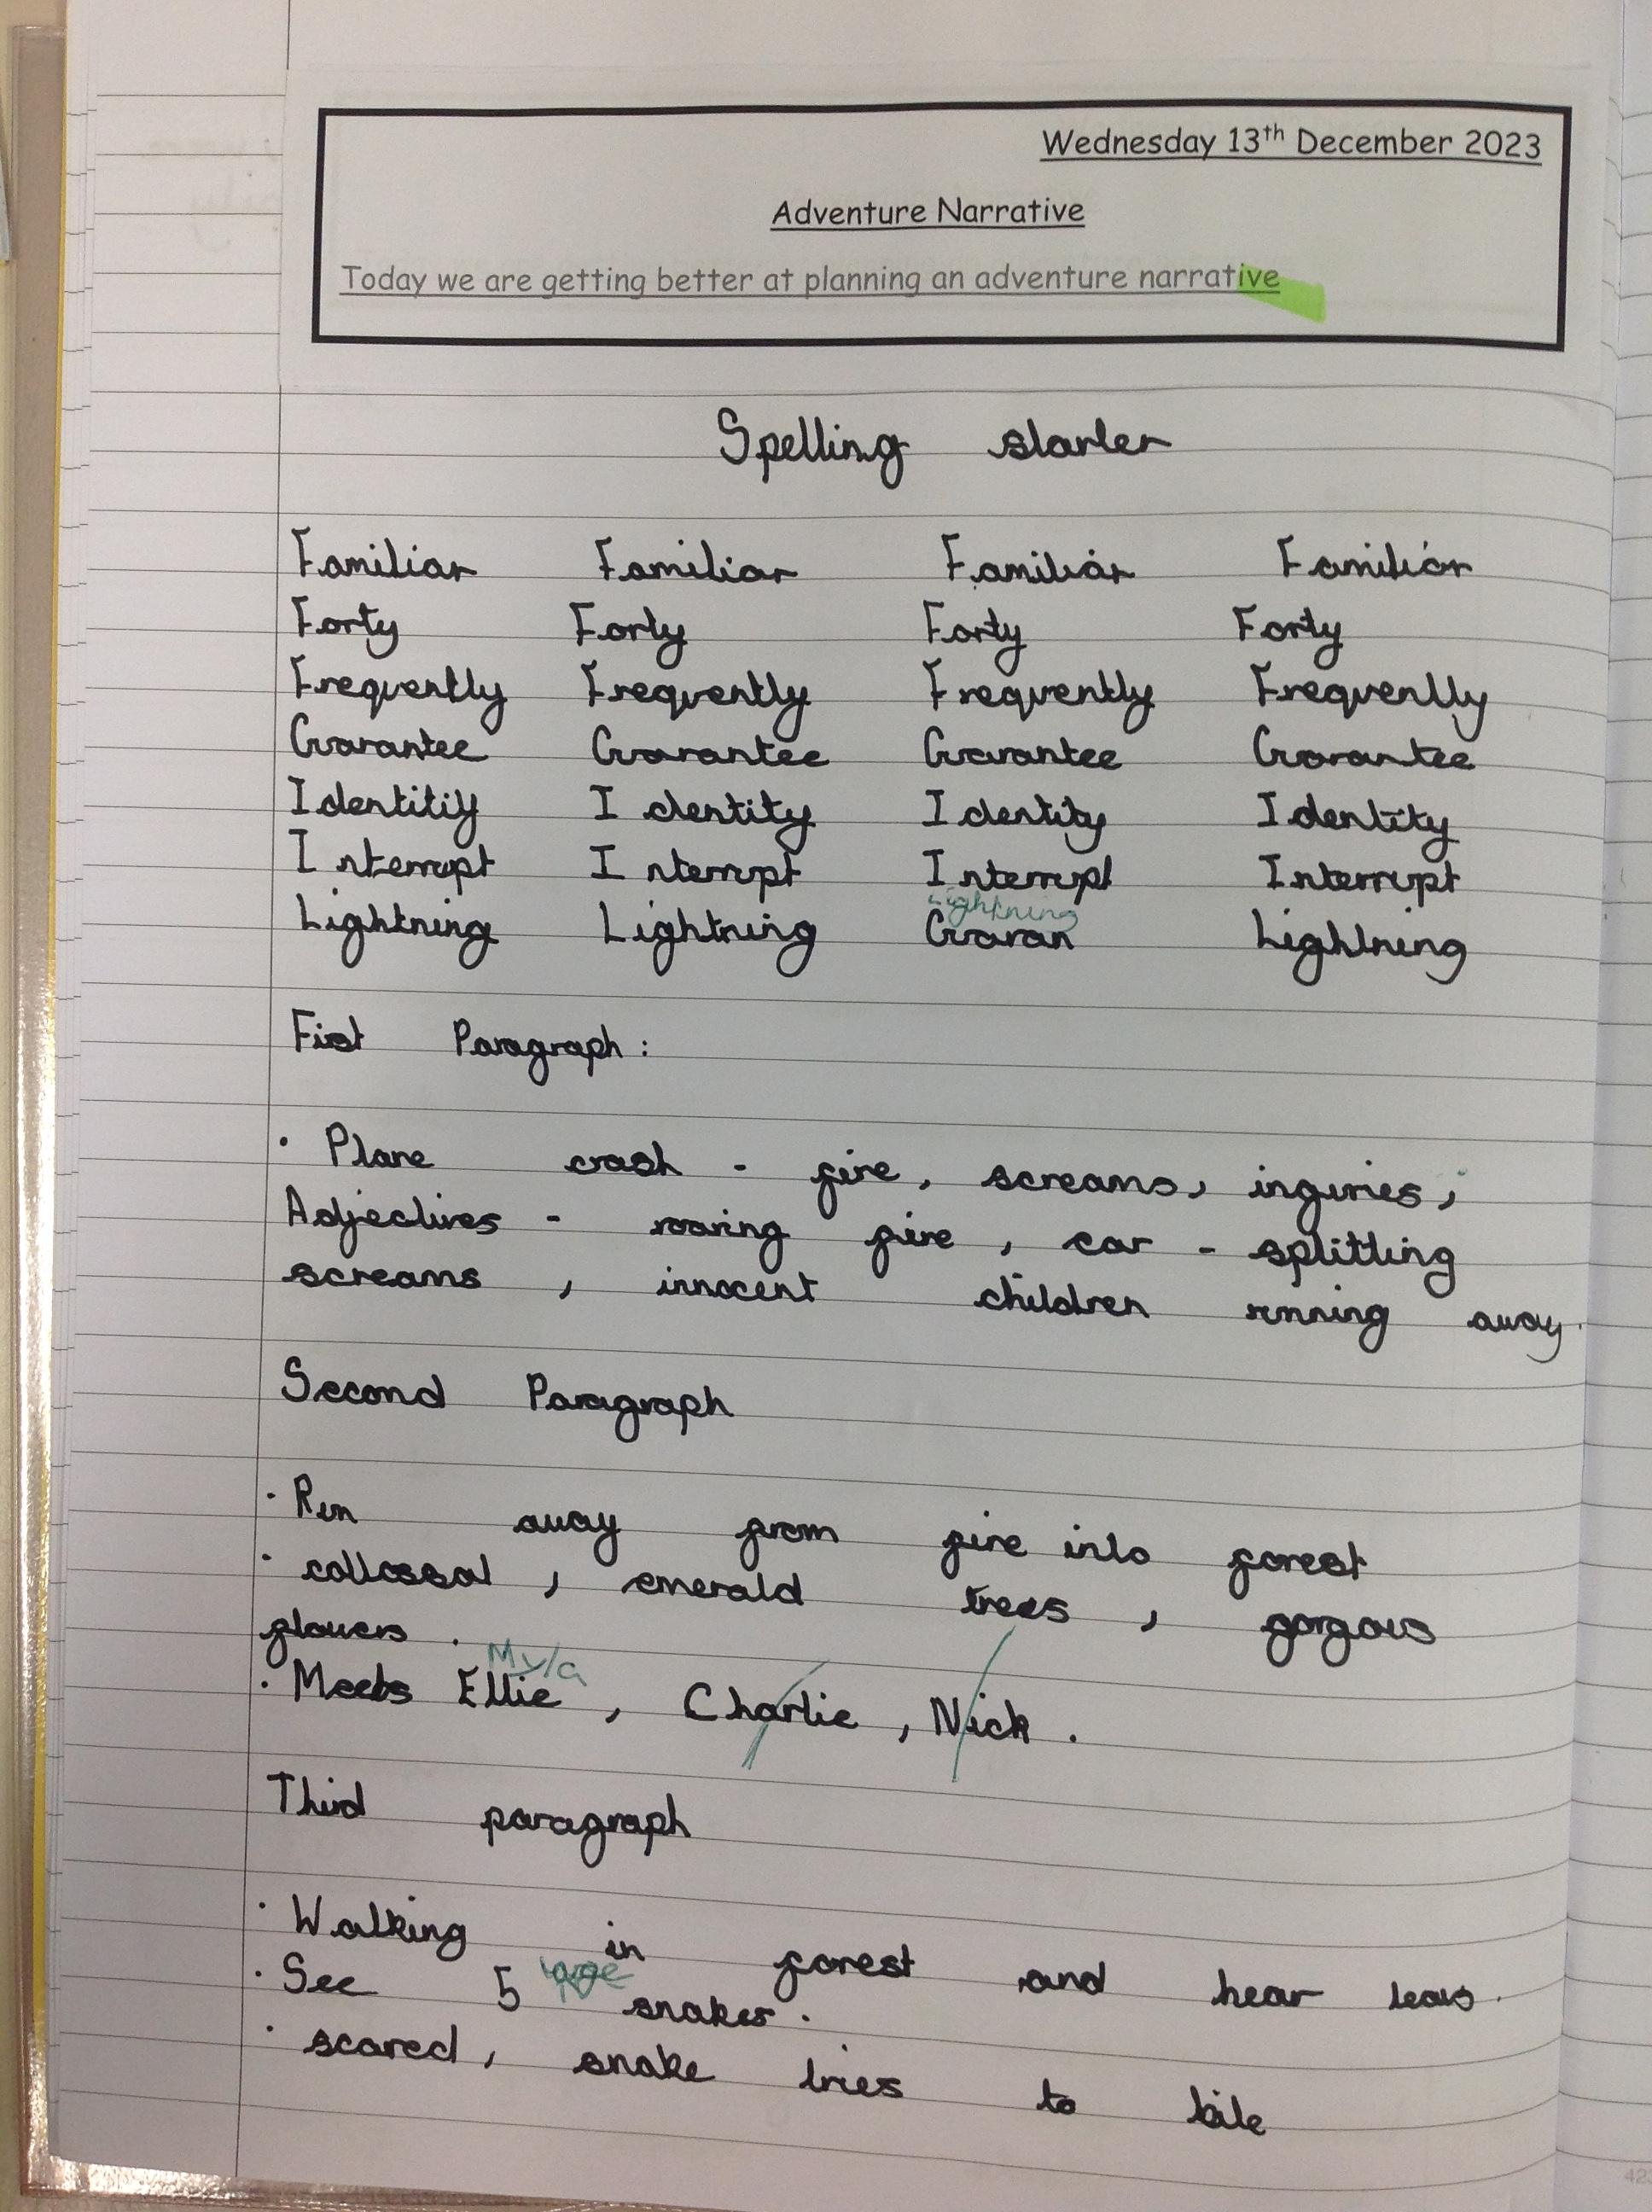 Wednesday 13th December 2023
Adventure Narrative
Today we are getting better at planning an adventure narrative
Spelling starter
Familiar Familiar Familiar Familiar
Forty Forty Forty Forty
Frequently Frequently Frequently Frequently
Guarantee Guarantee Guarantee Guarantee
Identitiy Identity Identity Identity
Interrupt Interrupt Interrupt Interrupt
Lightning
Lightning Lightning Guaran Lightning
First Paragraph:
· Plane crash - fire, screams, inguries,
Adjectives - roaring fire, ear-splitting
screams, innocent children running away.
Second Paragraph
· Run away from fire into forest
· collossal, emerald trees, gorgous
flowers.
Myla
· Meets Ellie, Charlie, Nick.
Third paragraph
· Walking in forest and hear leavs.
· See 5 large snakes.
· scared, snake tries to bite